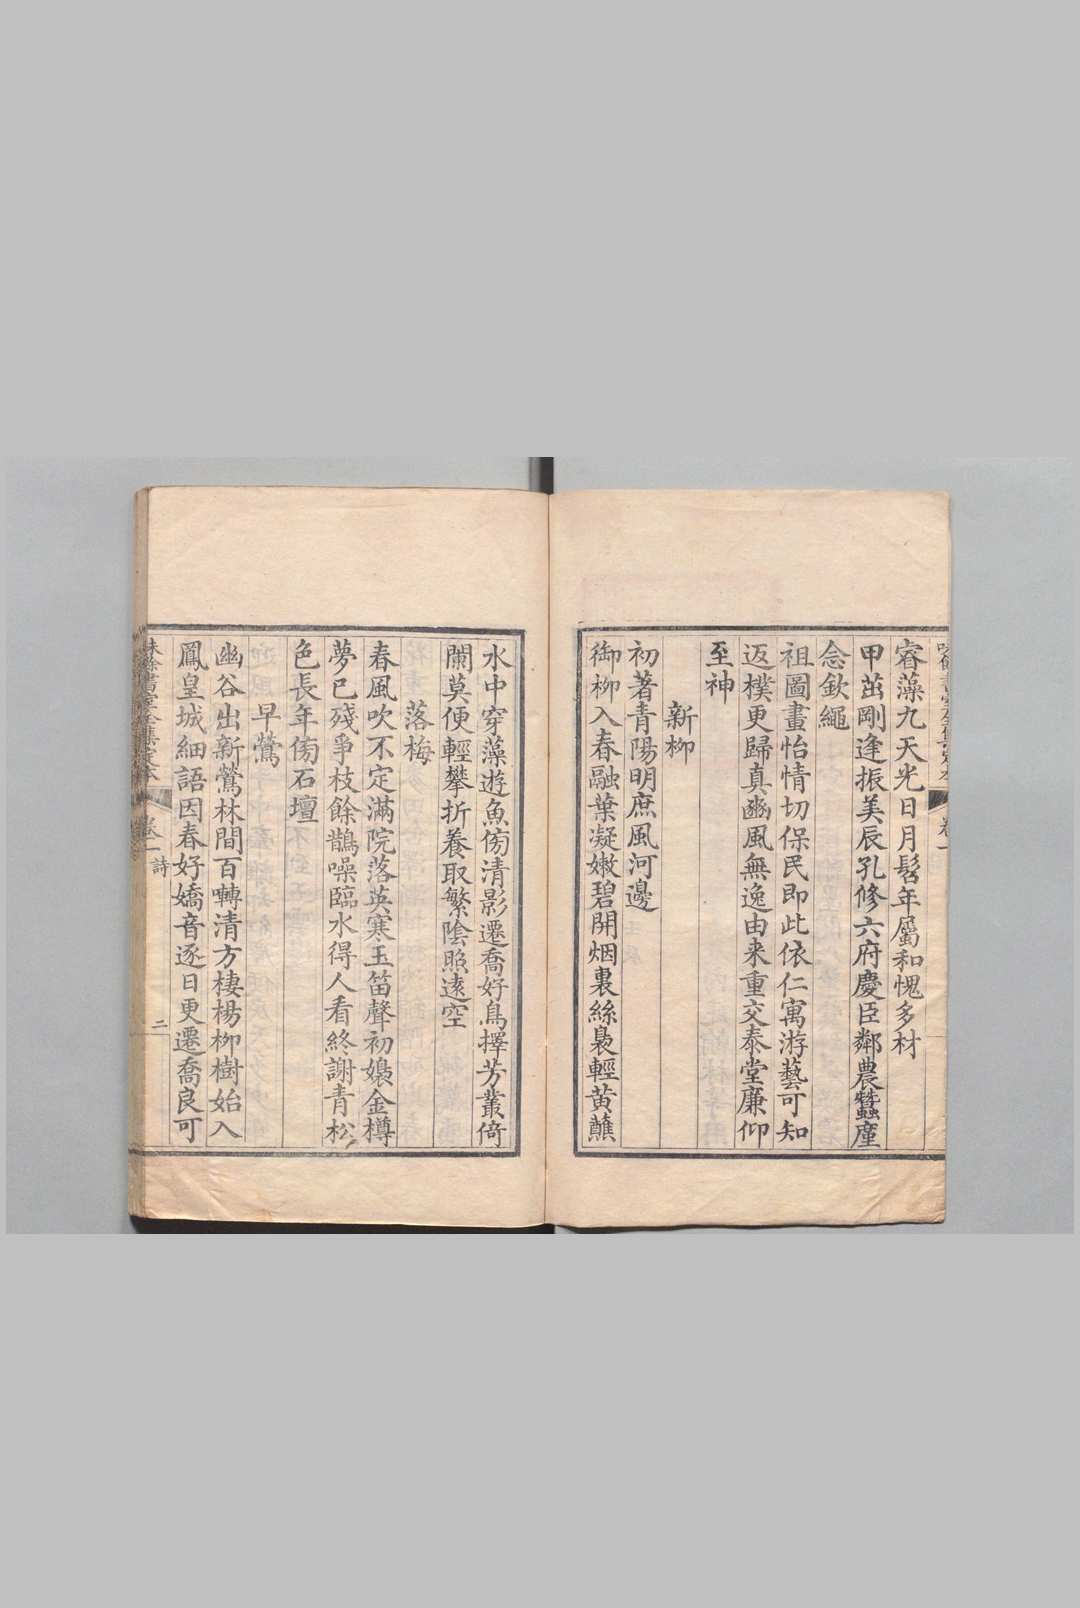 睿藻九天光日月髫年屬和愧多材
甲茁剛逢振美辰孔修六府慶臣鄰農蠶廑
念欽繩
祖圖畫怡情切保民即此依仁寓游藝可知
返樸更歸真豳風無逸由来重交泰堂廉仰
至神
新栁
初著青陽明庶風河邊
御栁入春融葉凝嫩碧開烟裏絲裊輕黄蘸
水中穿藻遊魚傍清影遷喬好鳥擇芳叢倚
闌莫便輕攀折養取繁陰照遠空
落梅
春風吹不定滿院落英寒玉笛聲初嬝金樽
夢已殘爭枝餘鵲噪臨水得人看終謝青松
色長年傍石壇
早鶯
幽谷出新鶯林間百囀清方棲楊栁樹始入
鳳皇城細語因春好嬌音逐日更遷喬良可
味餘書室全集定本
卷一
詩
二